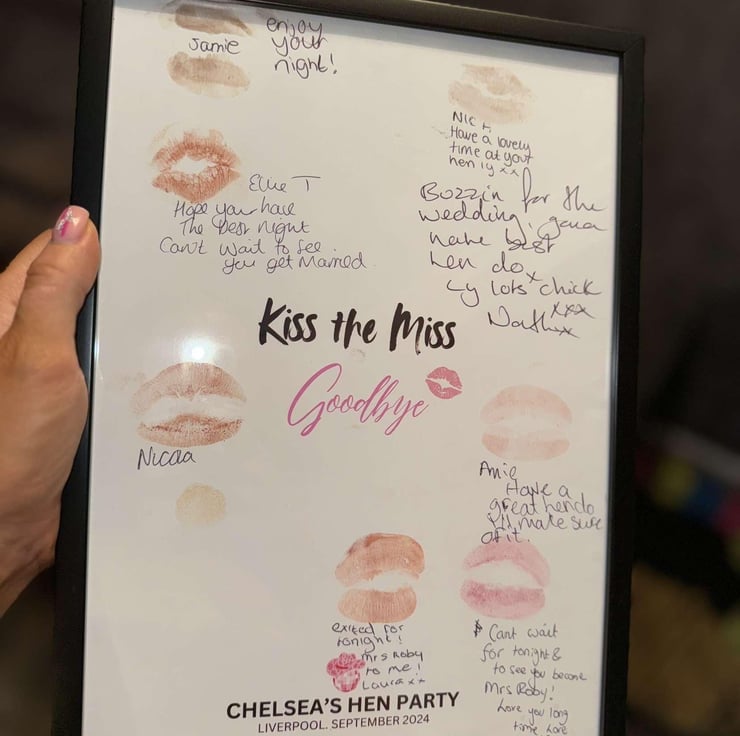 Jamie
enjoy
your
night!
Have a lovely
time at your
hen ly xx
Ellie T
Hope you have
The Best Night
Can't Wait to see
you get Married.
Buzzin for the
wedding, gona
have best
hen do x
Ly lots chick
xxx
Kiss the Miss
Goodbye
Amie
Have a
great hendo
I'll make sure
of it.
exited for
tonight!
Mrs Roby
to me!
Laura xx
Cant wait
for tonight &
to see you become
Mrs Roby!
Love you long
time
CHELSEA'S HEN PARTY
LIVERPOOL. SEPTEMBER 2024